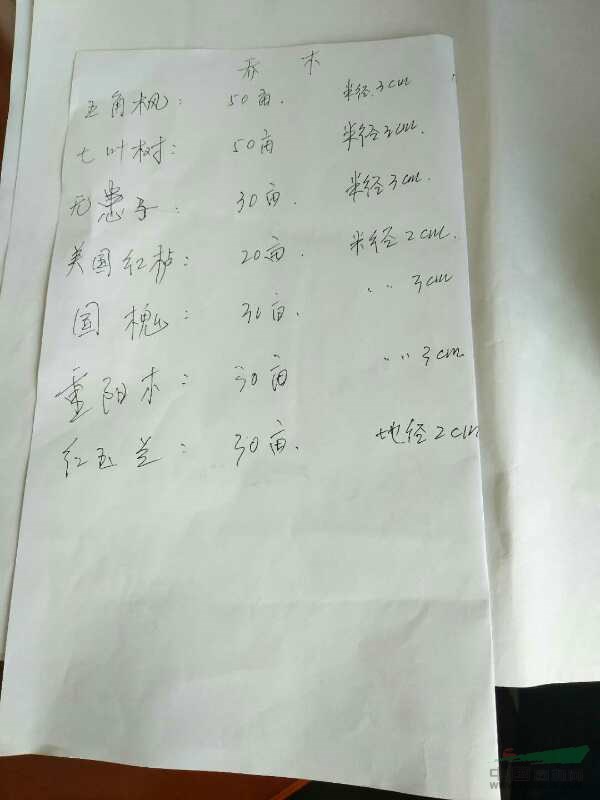 乔 木
五角枫: 50亩. 半径3cm
七叶树: 50亩 半径3cm.
无患子: 30亩. 半径3cm.
美国红栌: 20亩. 半径2cm.
国槐: 30亩. 〃 3cm
重阳木: 30亩 〃 3cm
红玉兰: 30亩. 地径2cm